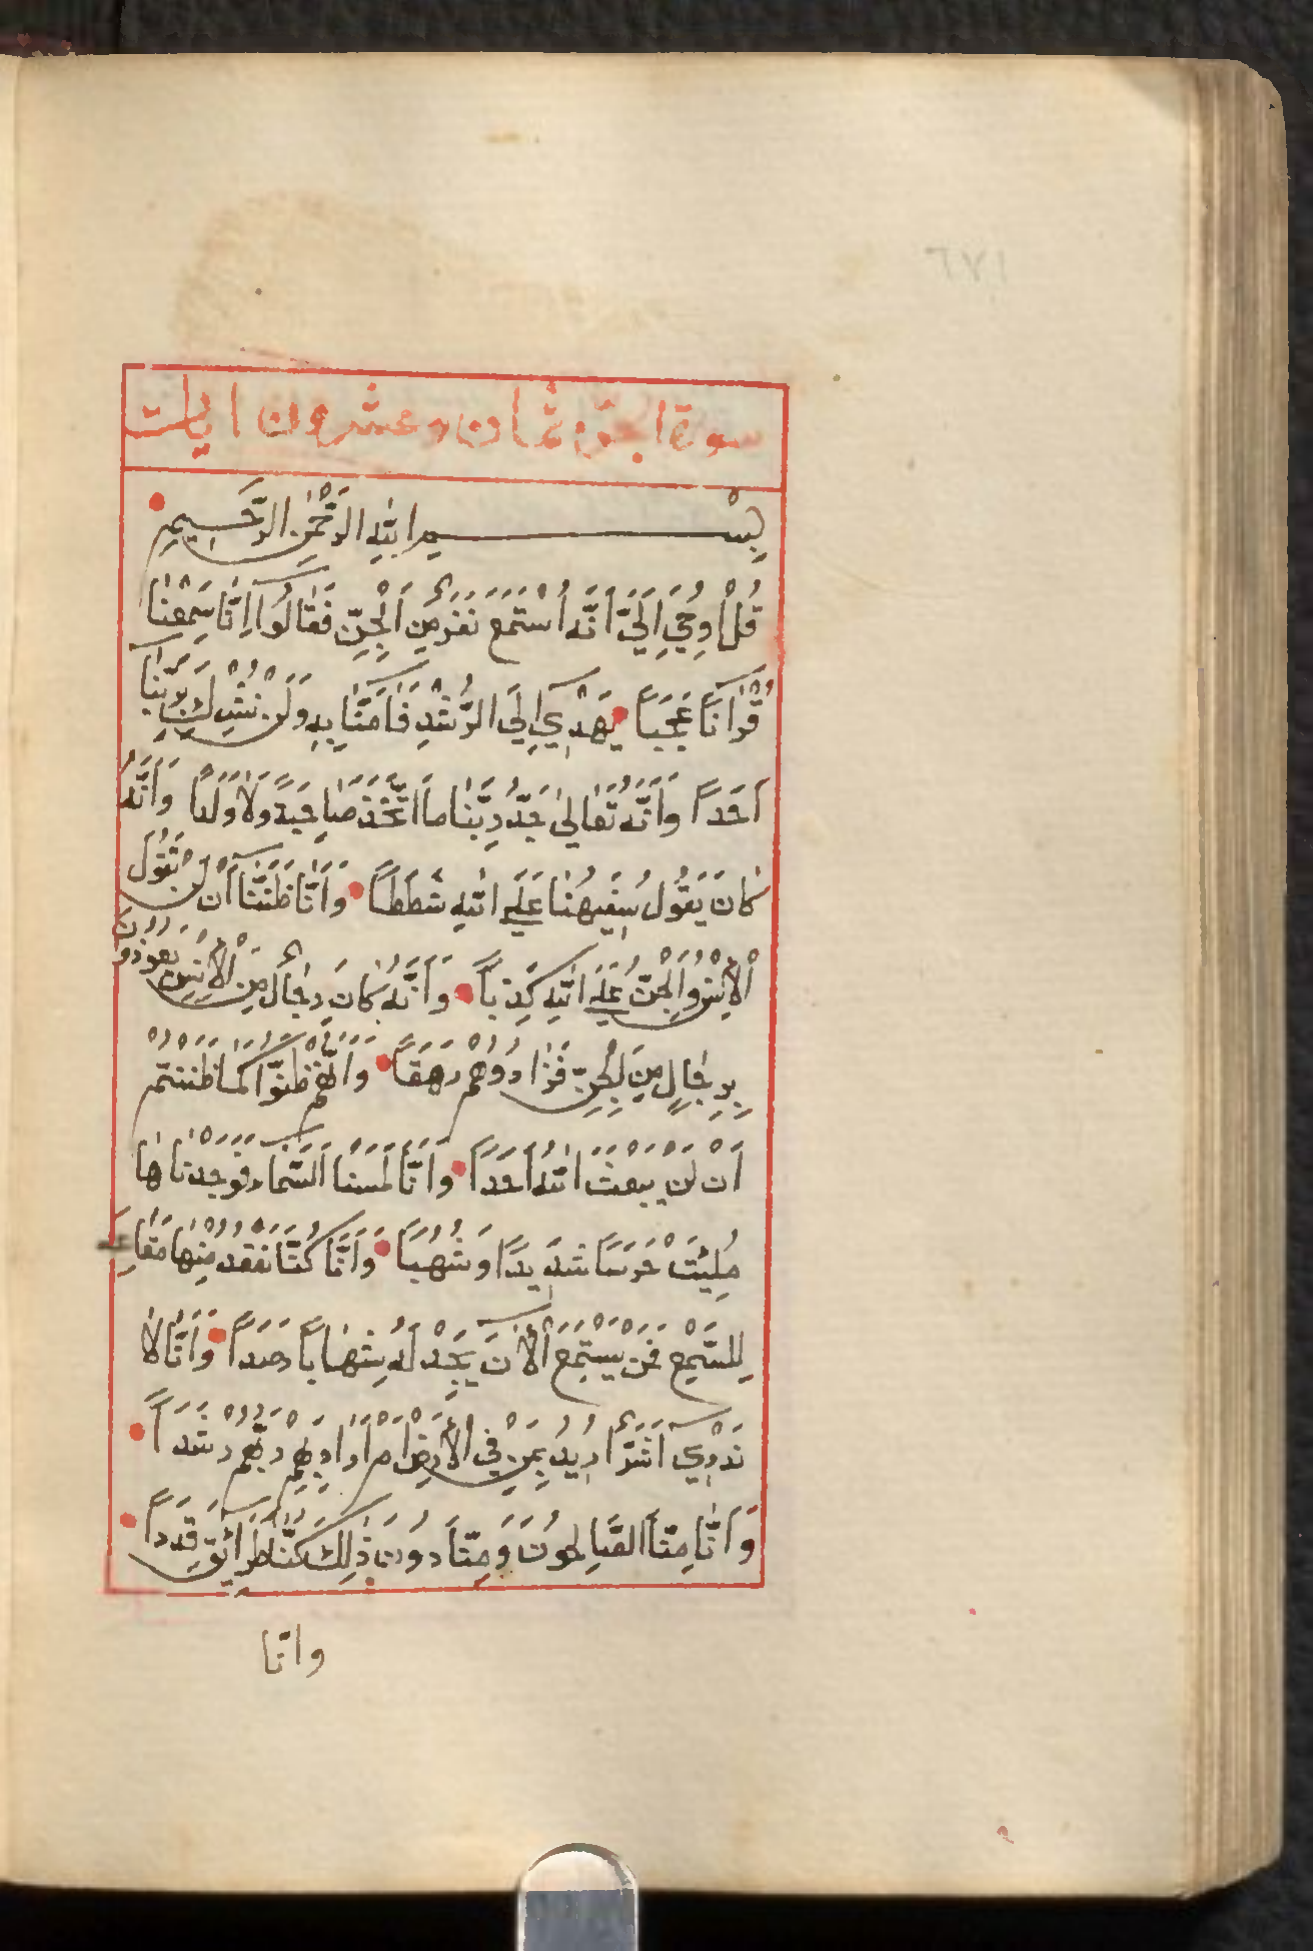 سورة الجن ثمان وعشرون ايات
بِسْــــمِ اللّٰهِ الرَّحْمٰنِ الرَّحِيمِ
قُلْ اُوحِيَ اِلَيَّ اَنَّهُ اسْتَمَعَ نَفَرٌ مِنَ الْجِنِّ فَقَالُوا اِنَّا سَمِعْنَا
قُرْاٰنًا عَجَبًا يَهْدِي اِلَى الرُّشْدِ فَاٰمَنَّا بِهِ وَلَنْ نُشْرِكَ بِرَبِّنَا
اَحَدًا وَاَنَّهُ تَعَالٰى جَدُّ رَبِّنَا مَا اتَّخَذَ صَاحِبَةً وَلَا وَلَدًا وَاَنَّهُ
كَانَ يَقُولُ سَفِيهُنَا عَلَى اللّٰهِ شَطَطًا وَاَنَّا ظَنَنَّا اَنْ لَنْ تَقُولَ
الْاِنْسُ وَالْجِنُّ عَلَى اللّٰهِ كَذِبًا وَاَنَّهُ كَانَ رِجَالٌ مِنَ الْاِنْسِ يَعُوذُونَ
بِرِجَالٍ مِنَ لْجِنِّ فَزَادُوهُمْ رَهَقًا وَاَنَّهُمْ ظَنُّوا كَمَا ظَنَنْتُمْ
اَنْ لَنْ يَبْعَثَ اللّٰهُ اَحَدًا وَاَنَّا لَمَسْنَا السَّمَاءَ فَوَجَدْنَاهَا
مُلِئَتْ حَرَسًا شَدِيدًا وَشُهُبًا وَاَنَّا كُنَّا نَقْعُدُ مِنْهَا مَقَاعِدَ
لِلسَّمْعِ فَمَنْ يَسْتَمِعِ الْاٰنَ يَجِدْ لَهُ شِهَابًا رَصَدًا وَاَنَّا لَا
نَدْرِي اَشَرٌّ اُرِيدُ بِمَنْ فِي الْاَرْضِ اَمْ اَرَادَ بِهِمْ رَبُّهُمْ رَشَدًا
وَاَنَّا مِنَّا الصَّالِحُونَ وَمِنَّا دُونَ ذٰلِكَ كُنَّا طَرَائِقَ قِدَدًا
وانّا